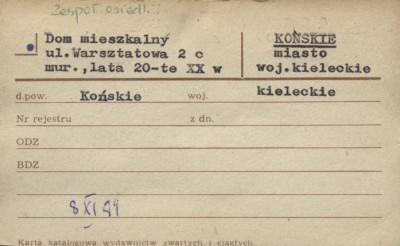 Zespół osiedl.:
Dom mieszkalny
ul.Warsztatowa 2 c
mur.,lata 20-te XX w
KOŃSKIE
miasto
woj.kieleckie
d.pow. Końskie woj. kieleckie
Nr rejestru z dn.
ODZ
BDZ
Karta katalogowa wydawnictw zwartych i ciągłych.